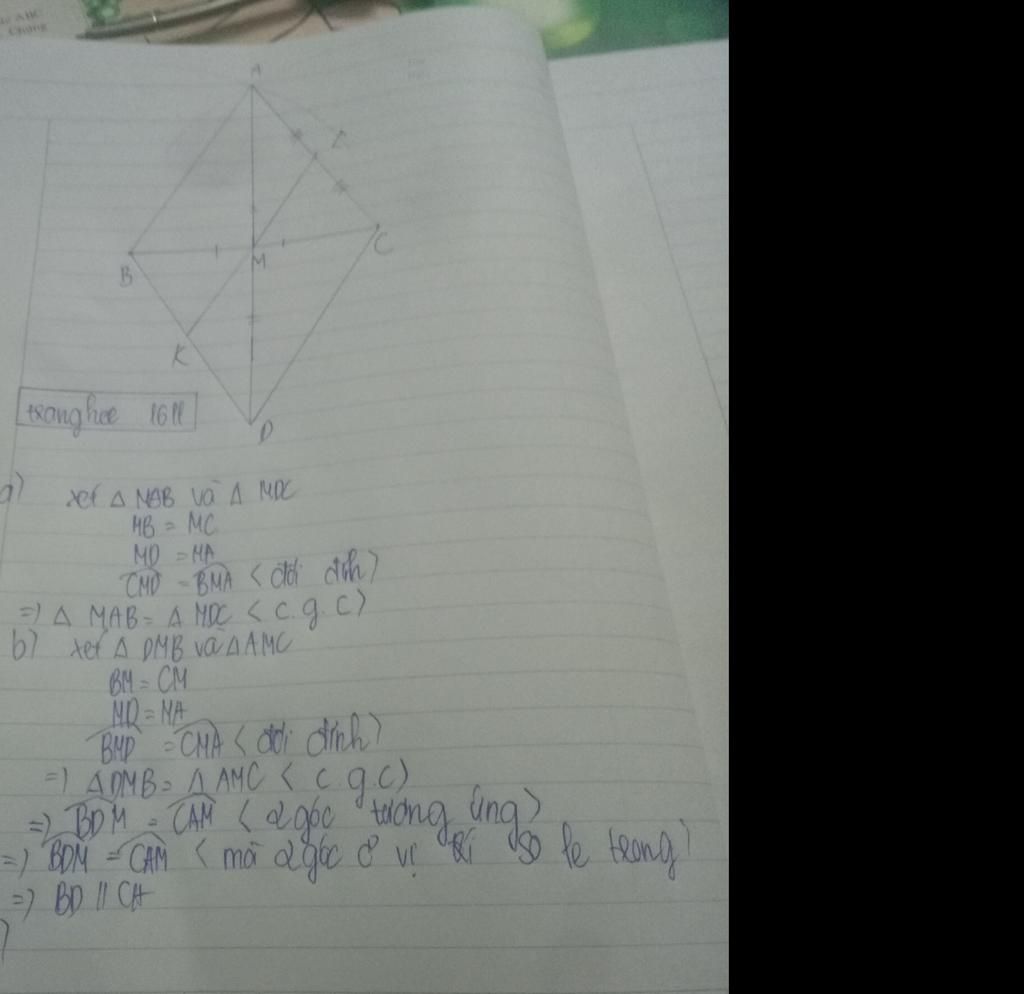 A
B
M
C
K
D
tranghee 1611
a) xét Δ MAB và Δ MDC
MB = MC
MD = MA
CMD = BMA < đối đỉnh)
=) Δ MAB = Δ MDC < c.g.c)
b) xét Δ DMB và Δ AMC
BM = CM
MD = MA
BMD = CMA < đối đỉnh)
=) ΔDMB = Δ AMC < c.g.c)
=) BDM = CAM < 2 góc tương ứng >
=) BDM = CAM < mà 2 góc ở vị trí so le trong)
=) BD // CA